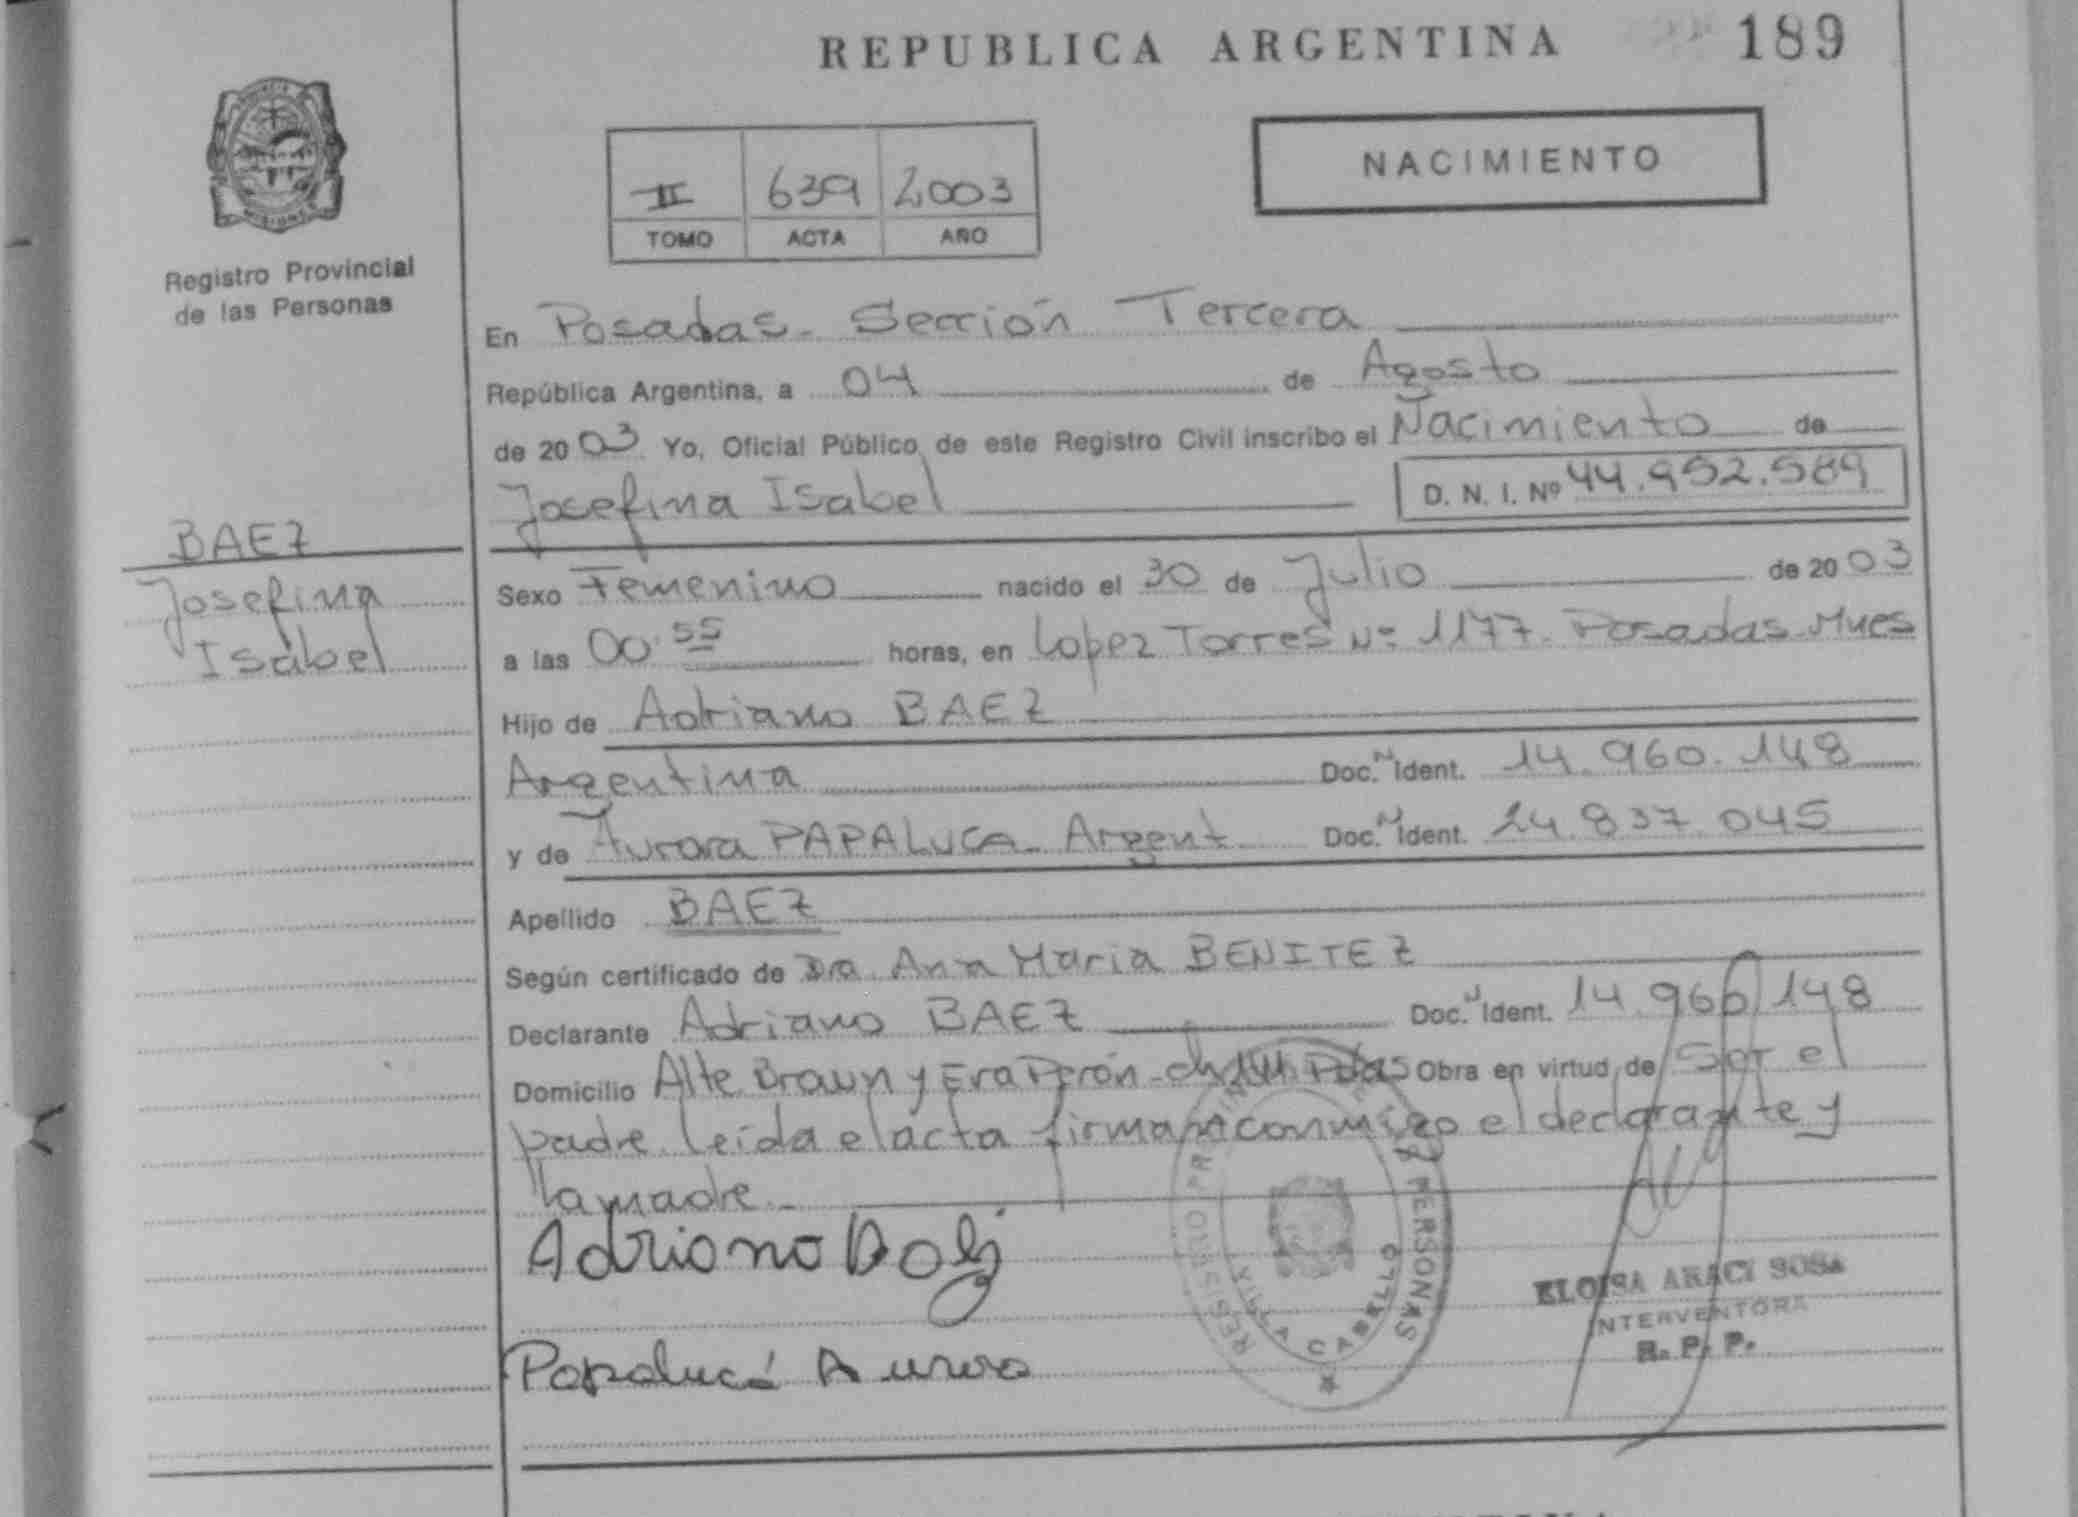 REPUBLICA ARGENTINA 189
NACIMIENTO
II 639 2003
TOMO ACTA AÑO
MISIONES
Registro Provincial
de las Personas
En Posadas - Sección Tercera
República Argentina, a 04 de Agosto
de 2003 Yo, Oficial Público de este Registro Civil inscribo el Nacimiento de
Josefina Isabel D. N. I. Nº 44.952.589
BAEZ
Josefina
Isabel
Sexo Femenino nacido el 30 de Julio de 2003
a las 00:55 horas, en Lopez Torres Nº 1177. Posadas Mnes
Hijo de Adriano BAEZ
Argentina Doc. N Ident. 14.960.148
y de Aurora PAPALUCA - Argent. Doc. N Ident. 24.837.045
Apellido BAEZ
Según certificado de Dra. Ana Maria BENITEZ
Declarante Adriano BAEZ Doc. N Ident. 14.960.148
Domicilio Alte Brown y Eva Perón - ch 141. Pdas Obra en virtud de Ser el
padre. Leída el acta firman conmigo el declarante y
la madre.-
Adriano
Papaluca Aurora
REGISTRO PROVINCIAL DE LAS PERSONAS
VILLA CABELLO
ELOISA ARACI SOSA
INTERVENTORA
R. P. P.